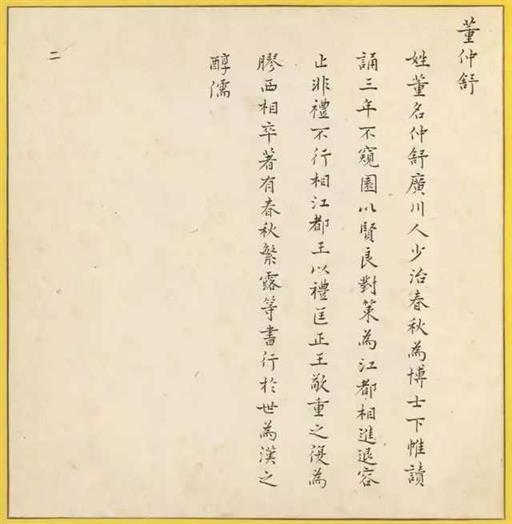 董仲舒
姓董名仲舒廣川人少治春秋為博士下帷讀
誦三年不窺園以賢良對策為江都相進退容
止非禮不行相江都王以禮匡正王敬重之復為
膠西相卒著有春秋繁露等書行於世為漢之
醇儒
二